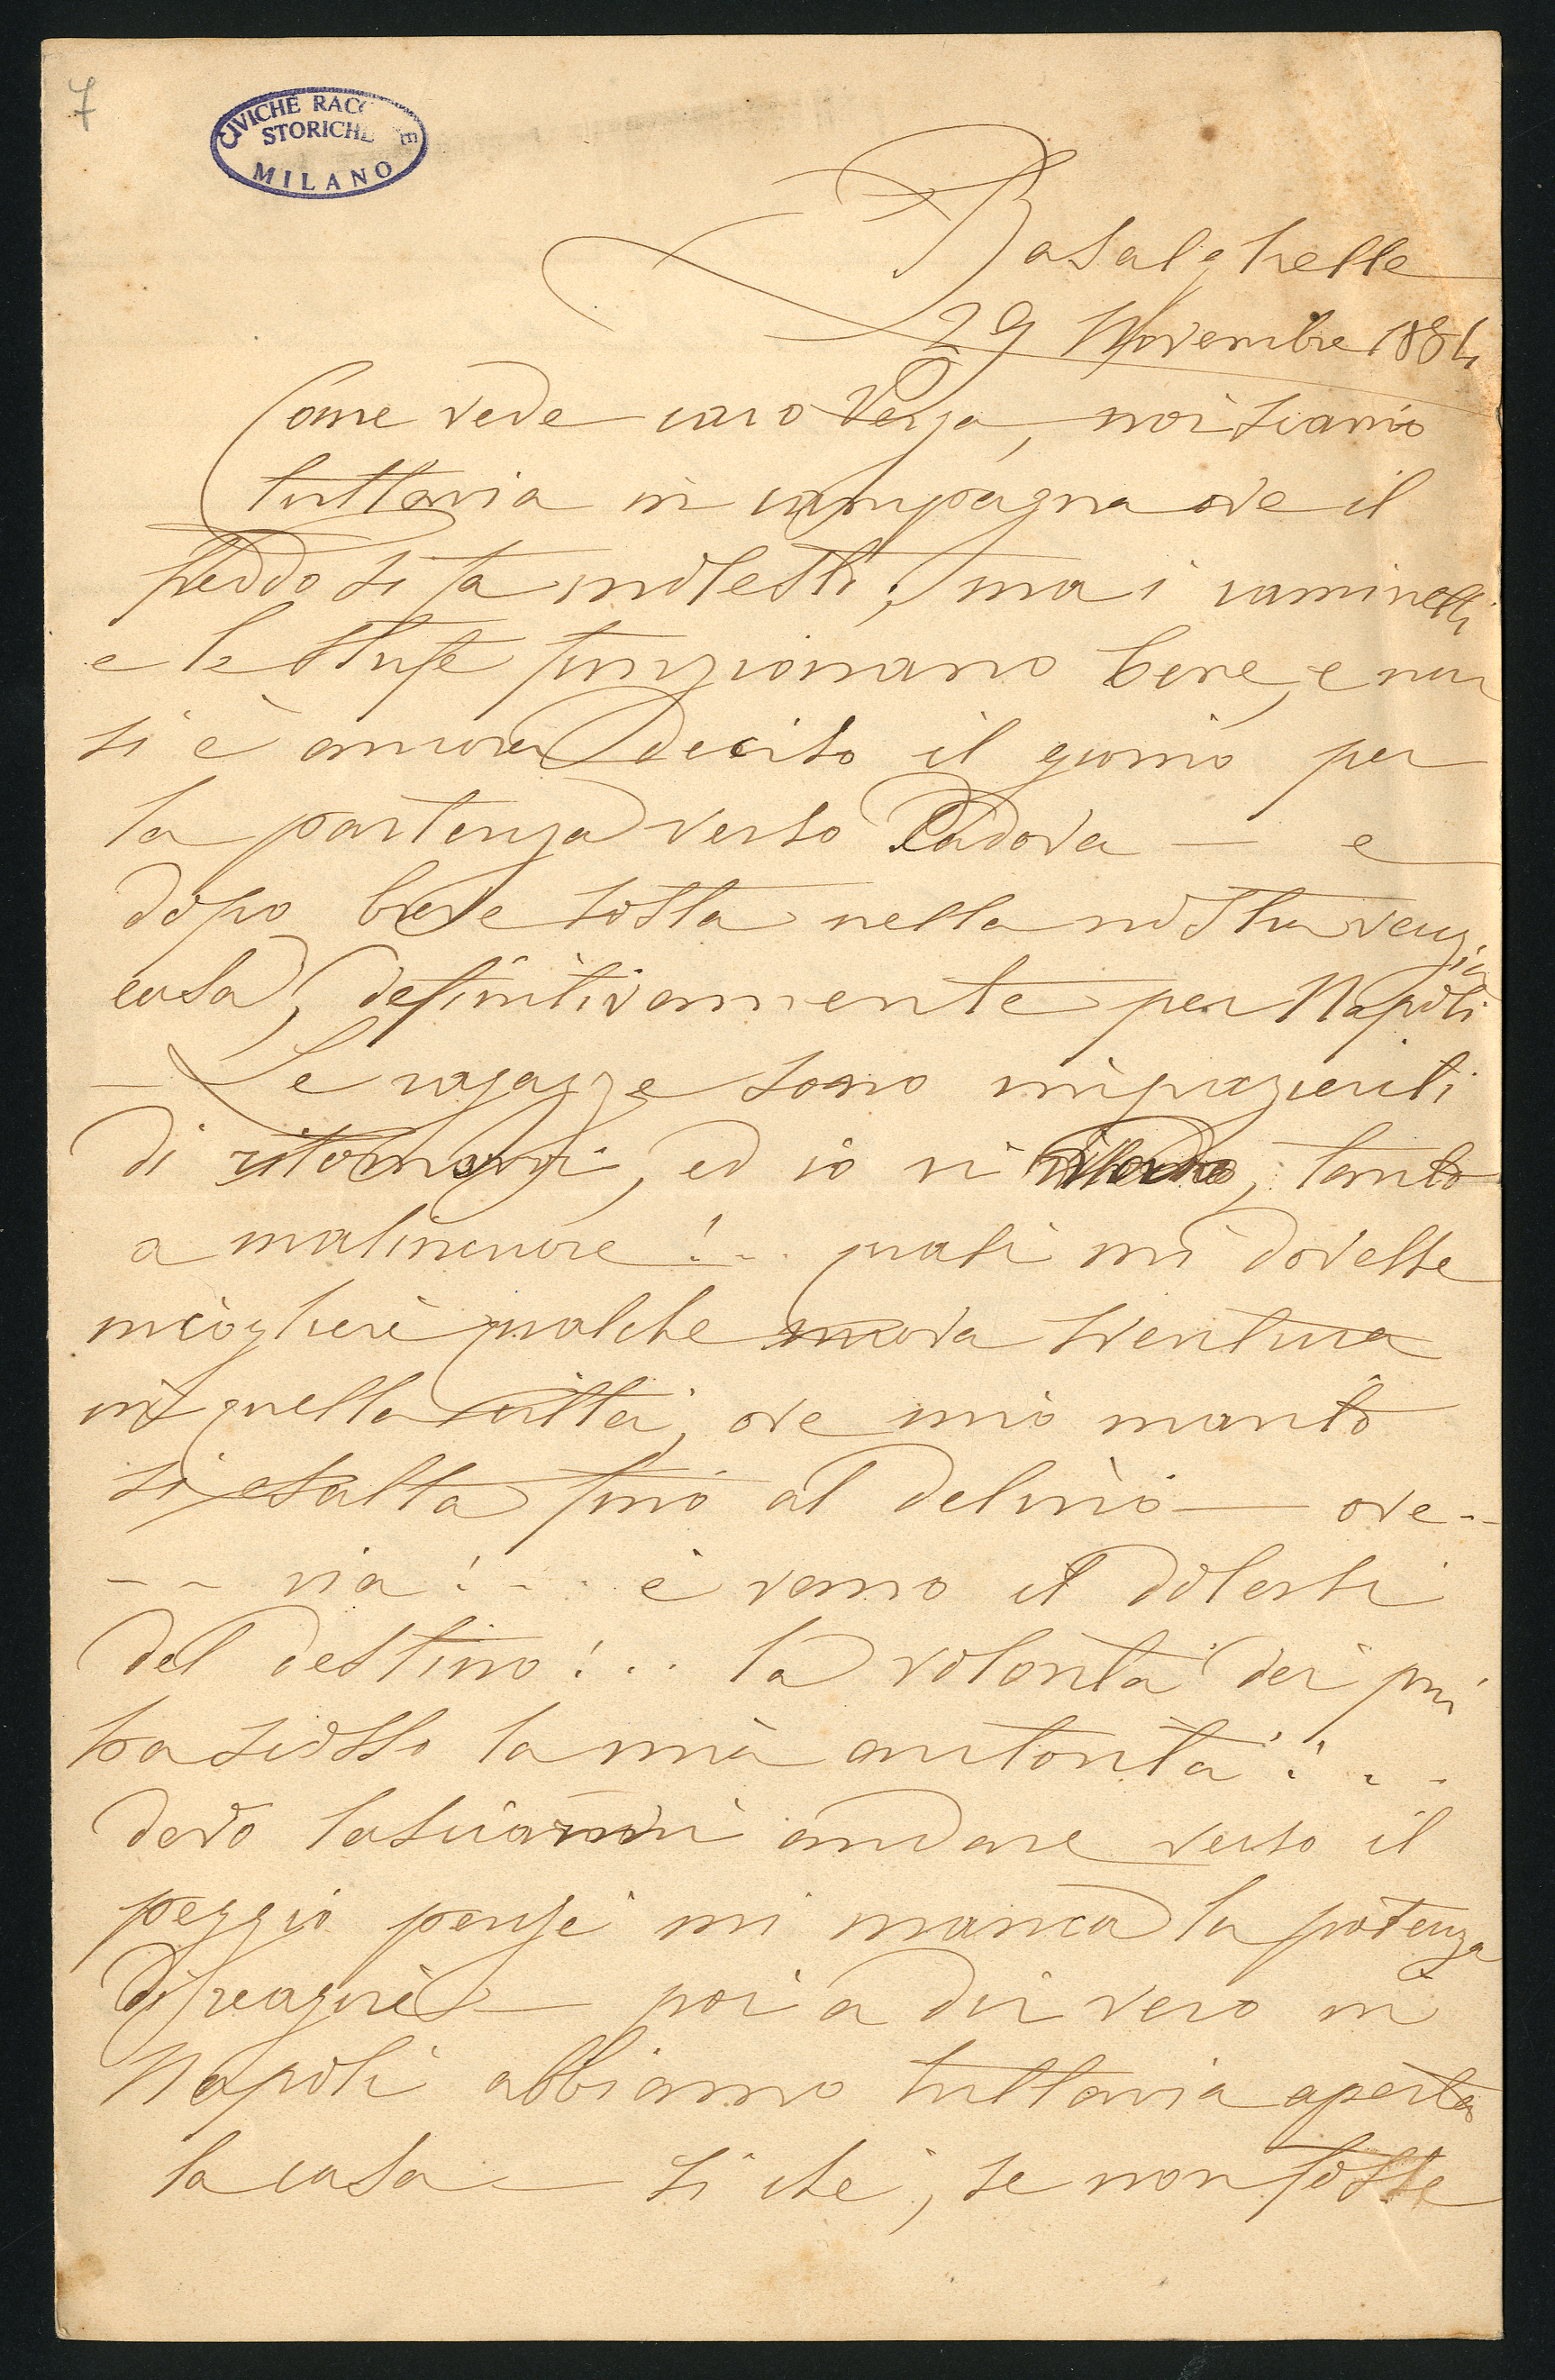 7
CIVICHE RACCOLTE
STORICHE
MILANO
Basalghelle
29 Novembre 1884
Come vede caro Verga, noi siamo
tuttavia in campagna ove il
freddo si fa molesto; ma i caminetti
e le stufe funzionano bene, e non
si è ancora deciso il giorno per
la partenza verso Padova — e
dopo breve sosta nella nostra vecchia
casa, definitivamente per Napoli
— Le ragazze sono impazienti
di ritornarvi, ed io vi ritorno, tanto
a malincuore!... quasi mi dovesse
incogliere qualche nuova sventura
in quella città, ove mio marito
si esalta fino al delirio — ove --
-- via!... è vano il dolersi
del destino!... la volontà dei più
ha scosso la mia autorità!...
devo lasciarmi andare verso il
peggio perchè mi manca la potenza
di reagire — poi a dir vero in
Napoli abbiamo tuttavia aperta
la casa — sì che, se non fosse